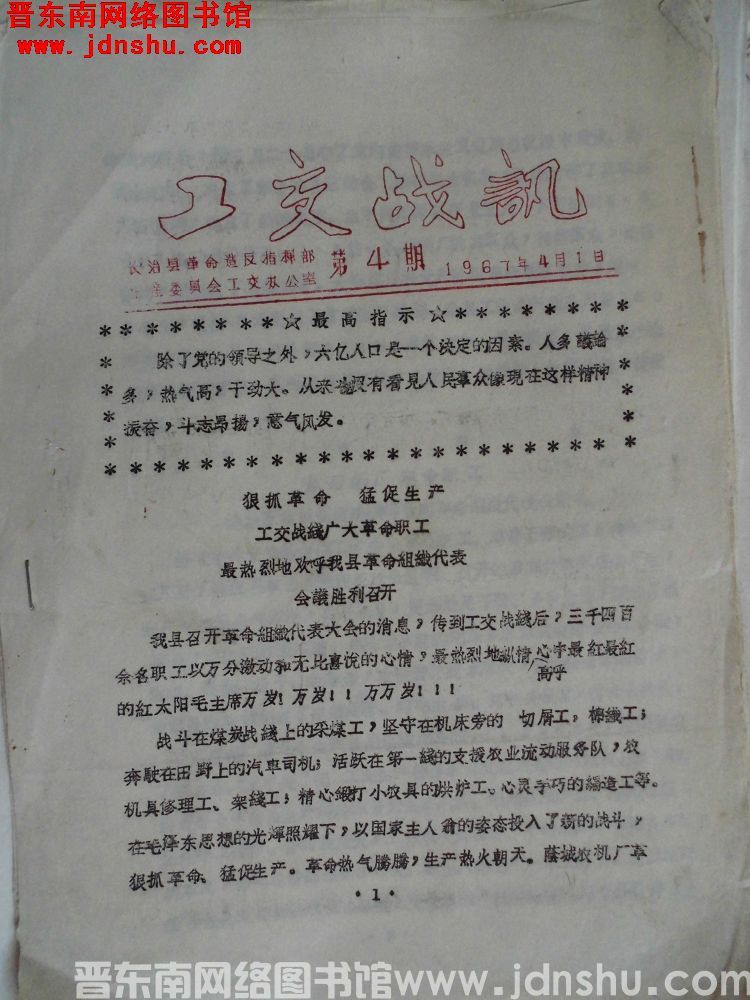 晋东南网络图书馆
www.jdnshu.com
工交战訊
长治县革命造反指揮部
生产委員会工交办公室
第4期
1967年4月1日
********☆最高指示☆********
除了党的領导之外，六亿人口是一个决定的因素。人多議論
多，热气高，干劲大。从来也沒有看見人民羣众像現在这样精神
振奋，斗志昂揚，意气风发。
狠抓革命 猛促生产
工交战綫广大革命职工
最热烈地欢乎我县革命組織代表
会議胜利召开
我县召开革命組織代表大会的消息，传到工交战綫后，三千四百
余名职工以万分激动和无比喜悅的心情，最热烈地縱情高乎心中最紅最紅
的紅太阳毛主席万岁！万岁！！万万岁！！！
战斗在煤炭战綫上的采煤工，坚守在机床旁的 切屑工，棉織工；
奔駛在田野上的汽車司机；活跃在第一綫的支援农业流动服务队，农
机具修理工、架綫工；精心鍛打小农具的烘炉工、心灵手巧的編造工等。
在毛澤东思想的光輝照耀下，以国家主人翁的姿态投入了新的战斗，
狠抓革命、猛促生产。革命热气騰騰，生产热火朝天。蔭城农机厂革
·1·
晋东南网络图书馆www.jdnshu.com